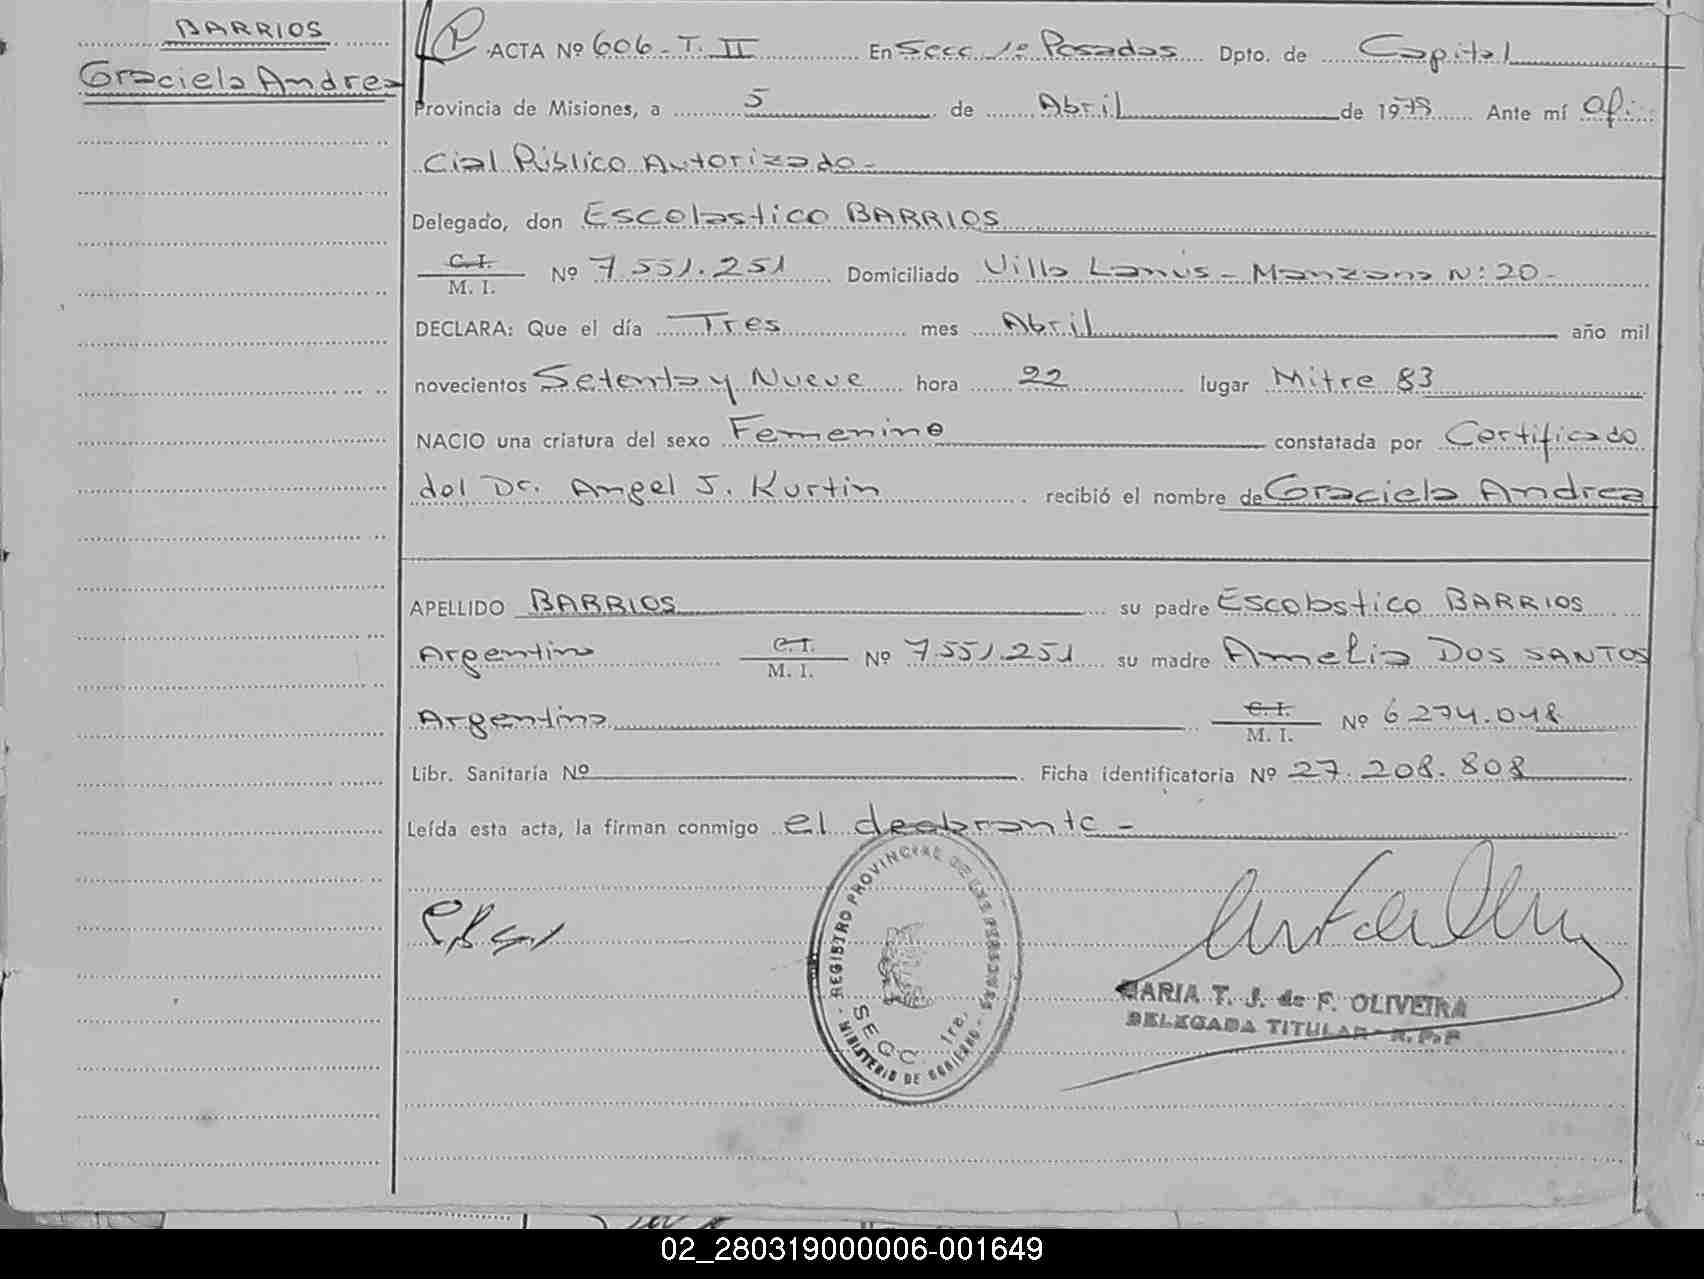 BARRIOS
Graciela Andrea
ACTA Nº 606 - T. II En Secc. 1º Posadas Dpto. de Capital
Provincia de Misiones, a 5 de Abril de 1979 Ante mí Ofi-
cial Público Autorizado -
Delegado, don Escolastico BARRIOS
C. I.
M. I. Nº 7.551.251 Domiciliado Villa Lanús - Manzana N: 20 -
DECLARA: Que el día Tres mes Abril año mil
novecientos Setenta y Nueve hora 22 lugar Mitre 83
NACIO una criatura del sexo Femenino constatada por Certificado
del Dr. Angel J. Kurtin recibió el nombre de Graciela Andrea
APELLIDO BARRIOS su padre Escolastico BARRIOS
Argentino C. I. M. I. Nº 7.551.251 su madre Amelia DOS SANTOS
Argentina C. I. M. I. Nº 6.274.048
Libr. Sanitaria Nº Ficha identificatoria Nº 27.208.808
Leída esta acta, la firman conmigo el declarante -
REGISTRO PROVINCIAL DE LAS PERSONAS
SECC. 1re.
MINISTERIO DE GOBIERNO
MARIA T. J. de F. OLIVEIRA
DELEGADA TITULAR R. P. P
02_280319000006-001649